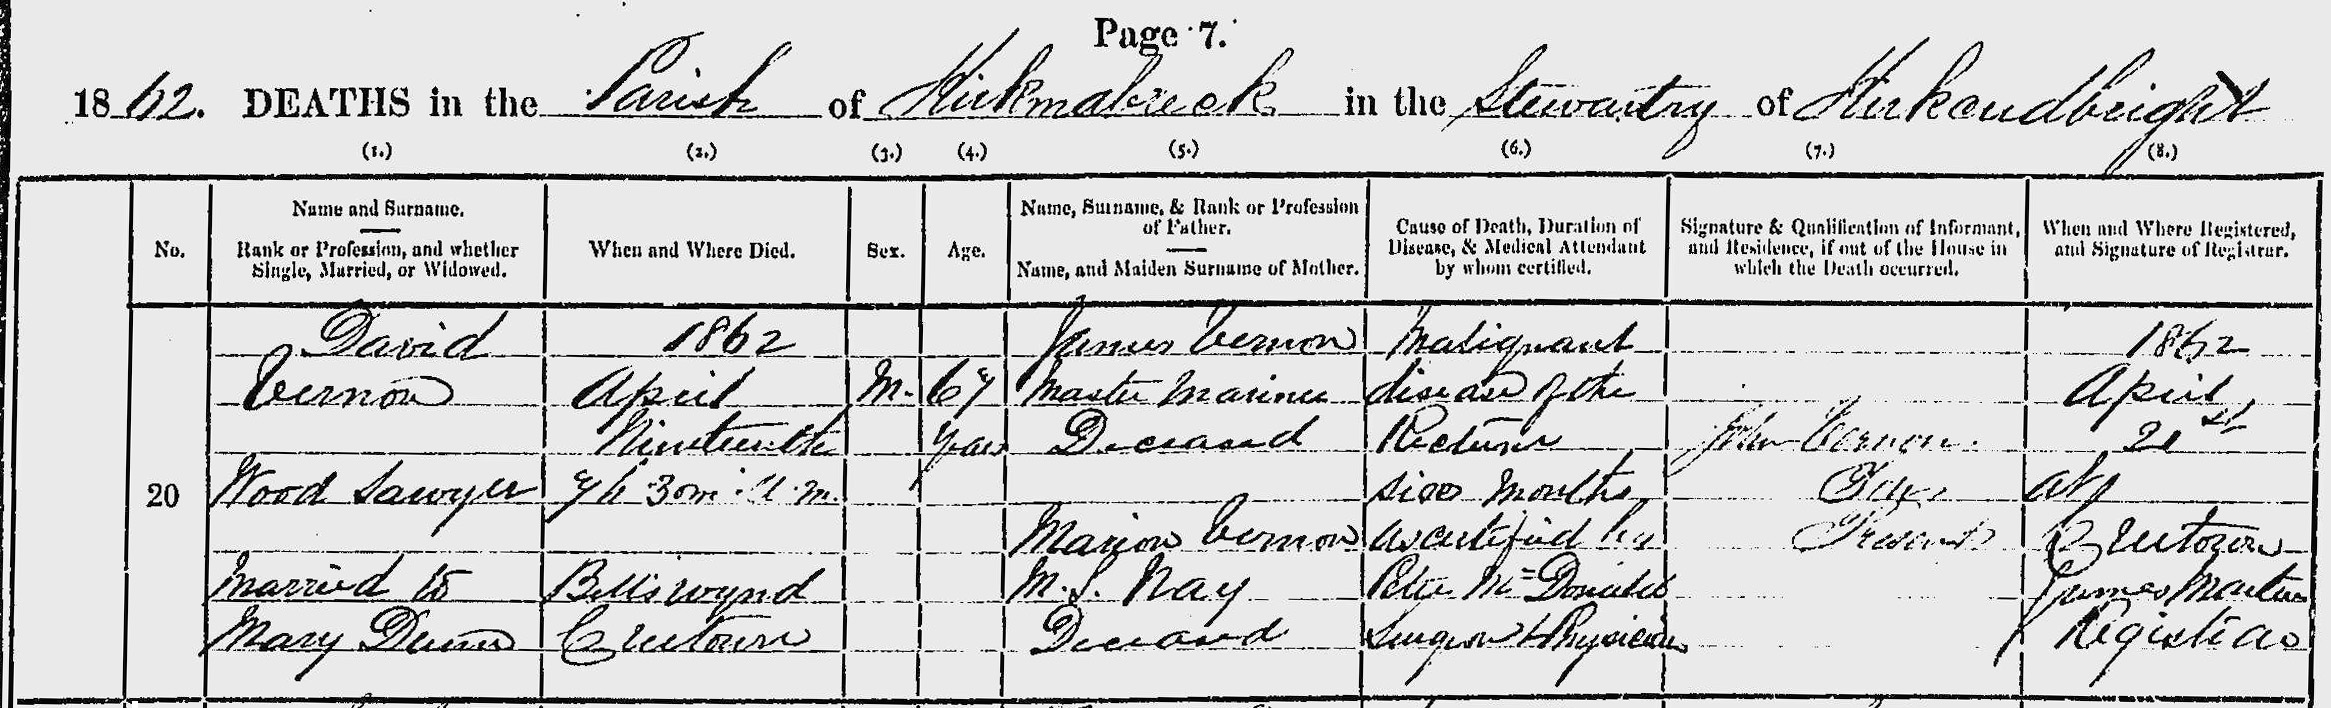 Page 7.
1862. DEATHS in the Parish of Kirkmabreck in the Stewartry of Kirkcudbright
(1.) (2.) (3.) (4.) (5.) (6.) (7.) (8.)
No.
Name and Surname.
Rank or Profession, and whether
Single, Married, or Widowed.
When and Where Died.
Sex.
Age.
Name, Surname, & Rank or Profession
of Father.
Name, and Maiden Surname of Mother.
Cause of Death, Duration of
Disease, & Medical Attendant
by whom certified.
Signature & Qualification of Informant,
and Residence, if out of the House in
which the Death occurred.
When and Where Registered,
and Signature of Registrar.
20
David
Vernon
Wood Sawyer
Married to
Mary Dunn
1862
April
Nineteenth
7h 30m A.M.
Bells wynd
Creetown
M.
67
years
James Vernon
Master Mariner
Deceased
Marion Vernon
M.S. Nay
Deceased
Malignant
disease of the
Rectum
six months
as certified by
Peter McDonald
Surgeon & Physician
John Vernon
Present
1862
April
21st
At
Creetown
James Martin
Registrar